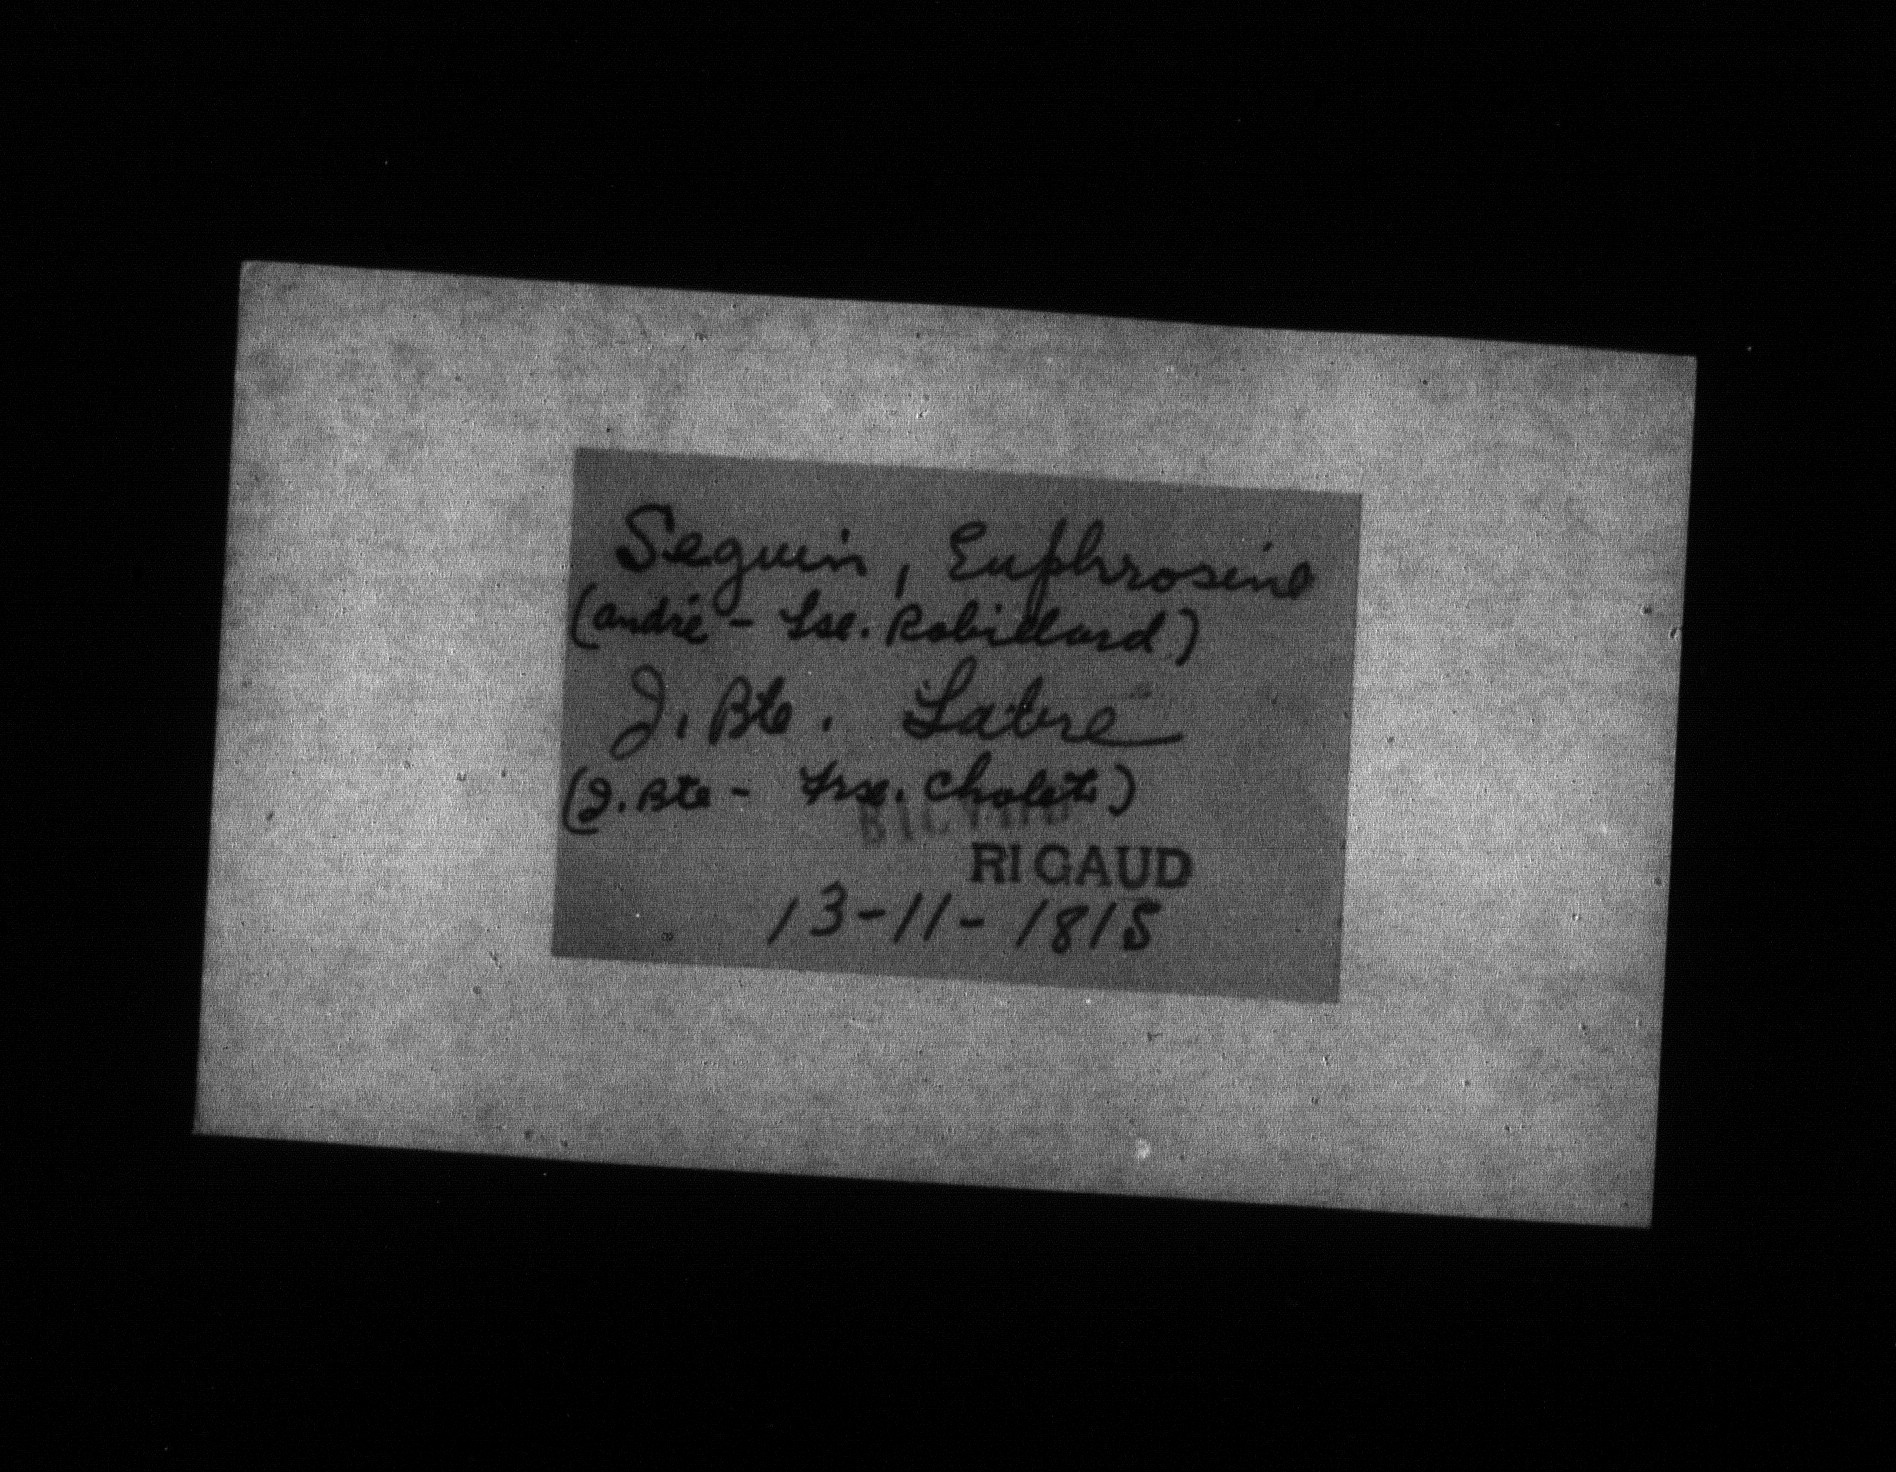 Seguin, Euphrosine
(André - Lse. Robillard)
J. Bte. Labre
(J. Bte - Frse. Cholet)
RIGAUD
13-11-1815